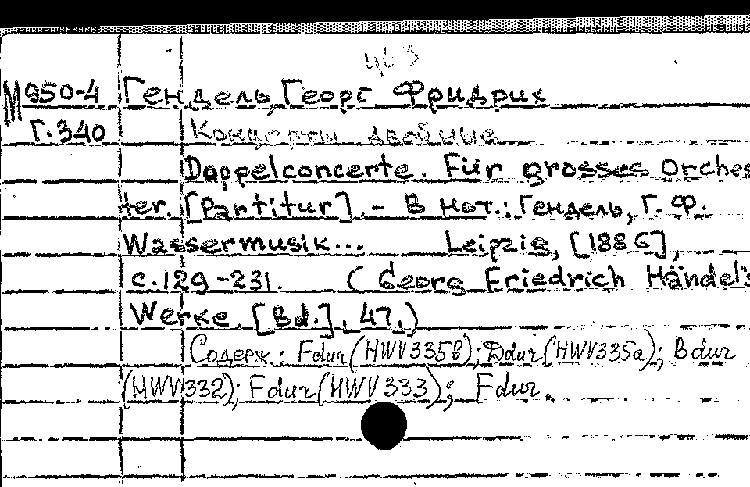 463
М950-4 Гендель, Георг Фридрих
Г.340 Концерты двойные
Doppelconcerte. Für grosses Orches
ter. [Partitur]. – В нот.: Гендель, Г. Ф.
Wassermusik... Leipzig, [1886],
с.129-231. (Georg Friedrich Händel's
Werke. [Bd.], 47.)
Содерж.: Fdur (HWV335b); Ddur (HWV335a); Bdur
(HWV332); Fdur (HWV333); Fdur.